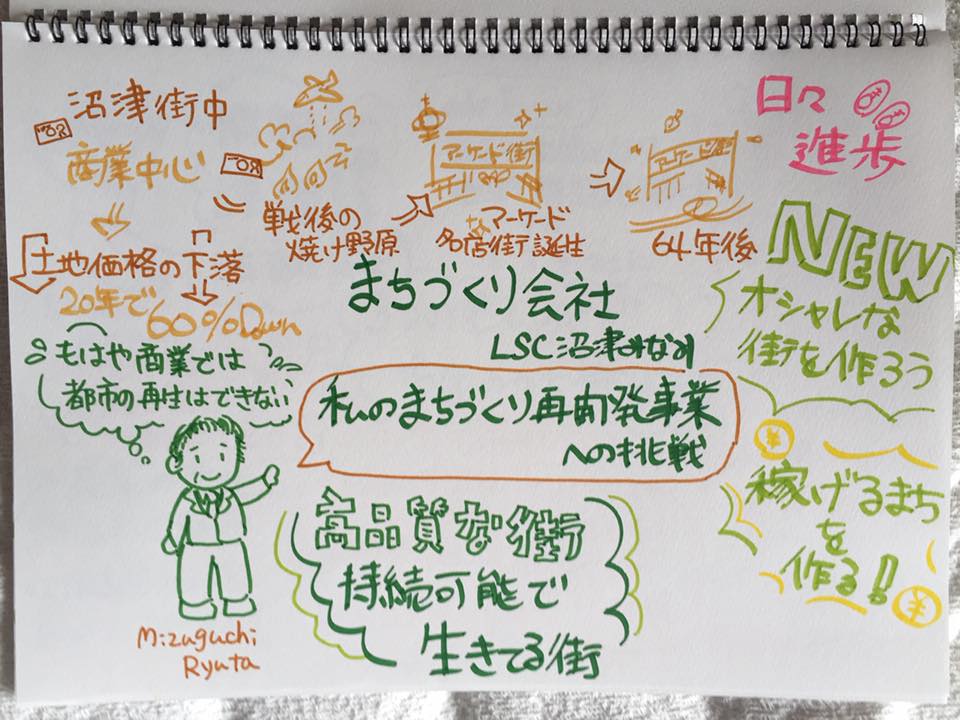 沼津街中
商業中心
土地価格の下落
20年で
60%Down
戦後の
焼け野原
アーケード街
アーケード
名店街誕生
アーケード街
64年後
日々
進歩
まちづくり会社
LSC沼津みなみ
もはや商業では
都市の再生はできない
私のまちづくり再開発事業
への挑戦
高品質な街
持続可能で
生きてる街
Mizuguchi
Ryuta
NEW
オシャレな
街を作ろう
¥
稼げるまち
を
作る!
¥